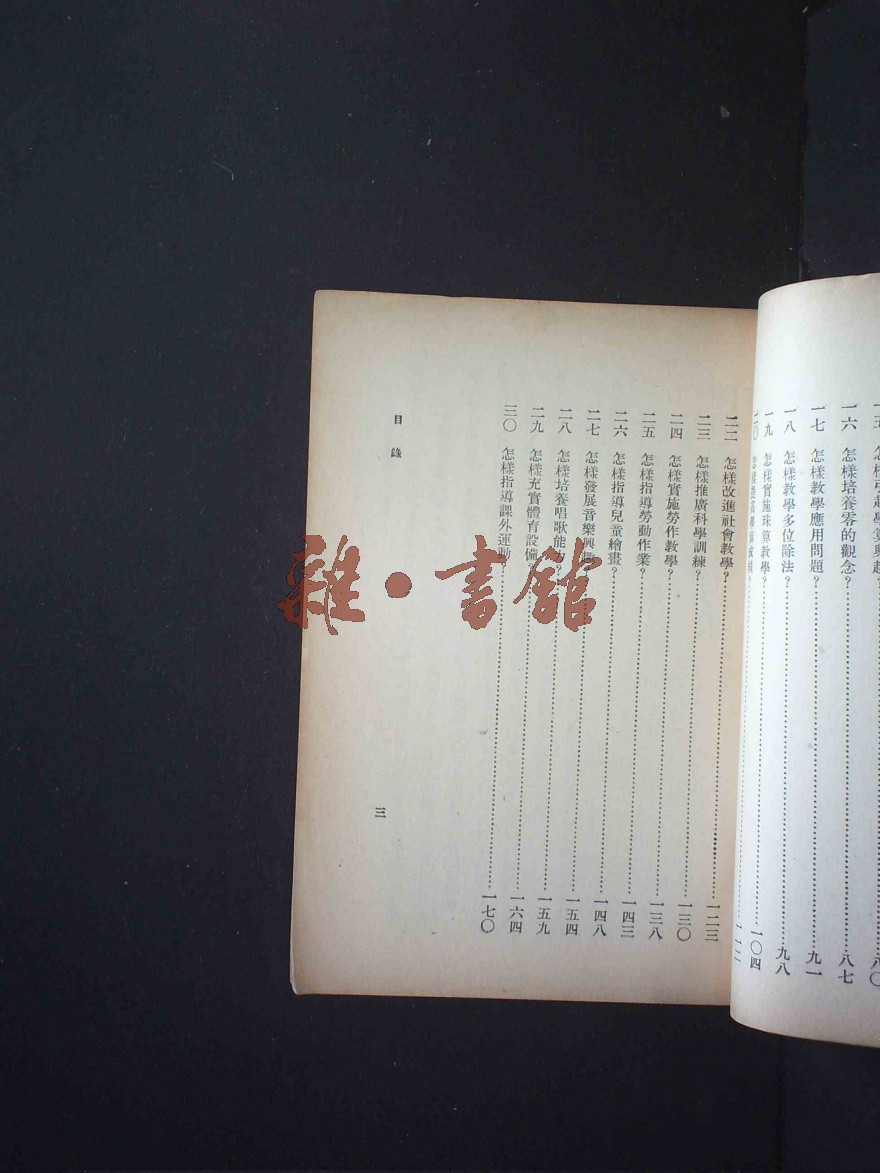 怎樣引起學算興趣
一六 怎樣培養零的觀念？……八七
一七 怎樣教學應用問題？……九一
一八 怎樣教學多位除法？……九八
一九 怎樣實施珠算教學？……一〇四
二二 怎樣改進社會教學？……一二三
二三 怎樣推廣科學訓練？……一三〇
二四 怎樣實施勞作教學？……一三八
二五 怎樣指導勞動作業？……一四三
二六 怎樣指導兒童繪畫？……一四八
二七 怎樣發展音樂興……一五四
二八 怎樣培養唱歌能力？……一五九
二九 怎樣充實體育設備？……一六四
三〇 怎樣指導課外運動？……一七〇
目錄
三
雜·書館